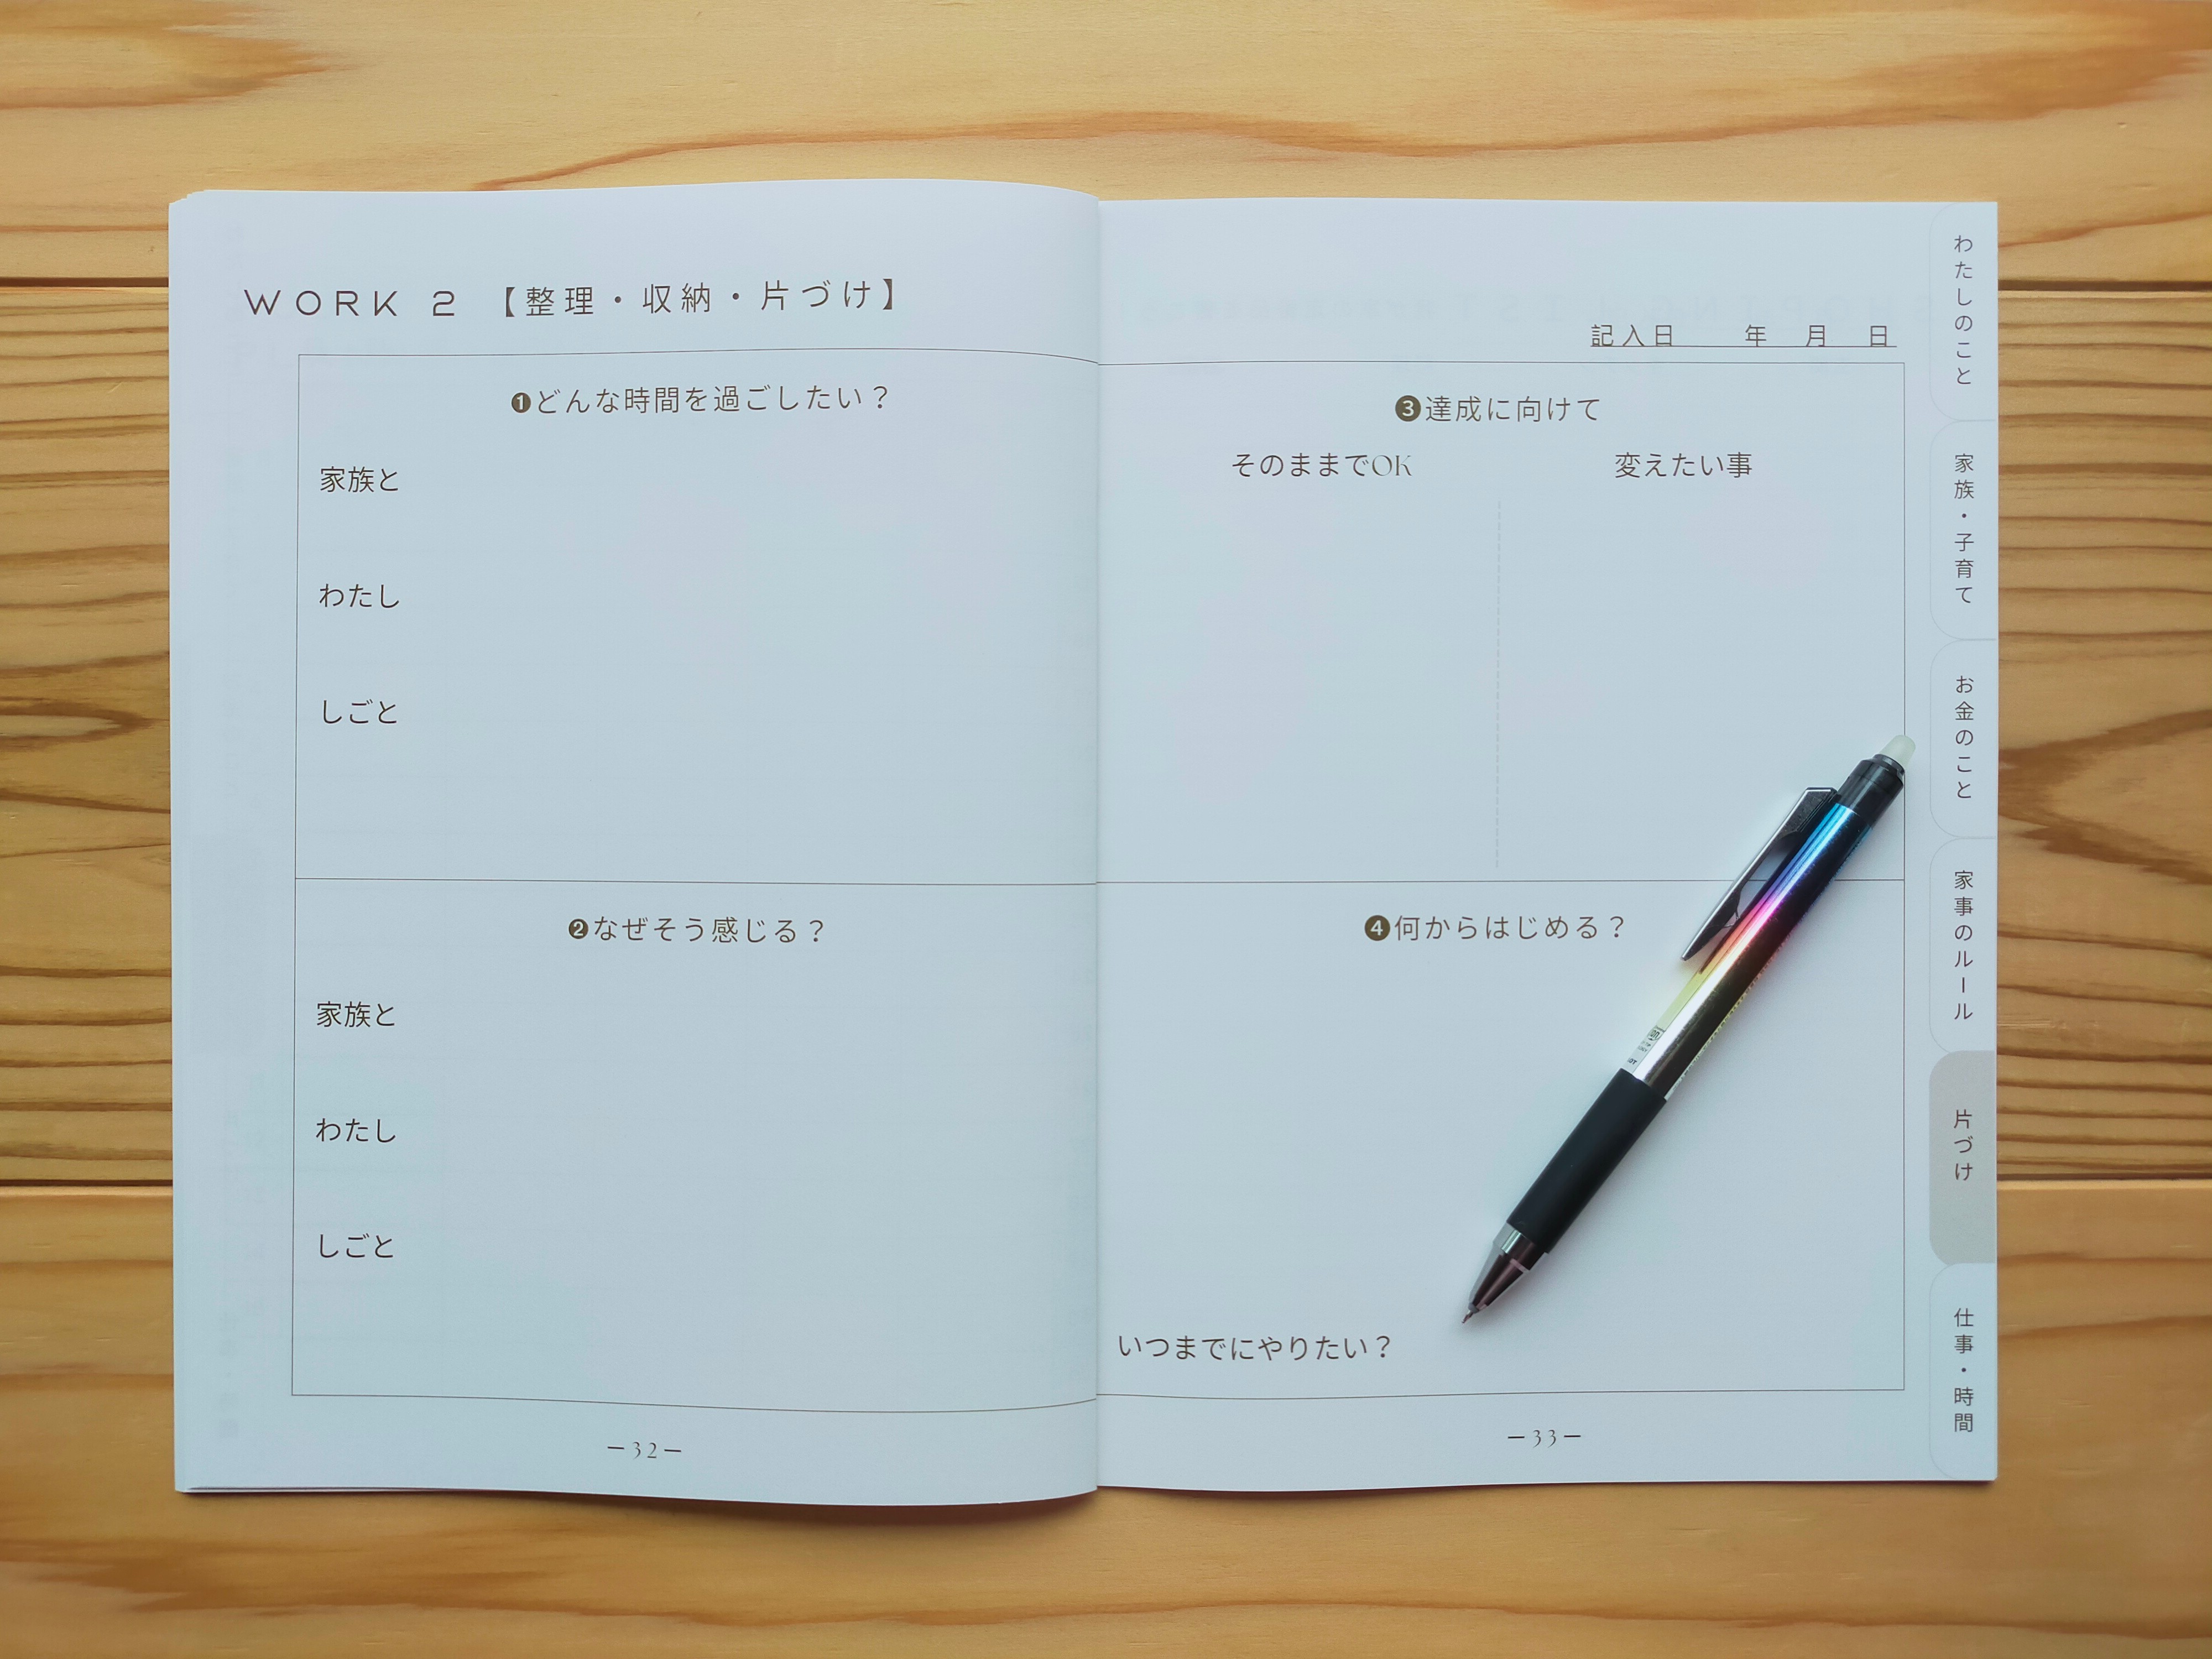 WORK 2 【整理・収納・片づけ】
❶どんな時間を過ごしたい？
家族と
わたし
しごと
❷なぜそう感じる？
家族と
わたし
しごと
－32－
記入日 年 月 日
❸達成に向けて
そのままでOK 変えたい事
❹何からはじめる？
いつまでにやりたい？
－33－
わたしのこと
家族・子育て
お金のこと
家事のルール
片づけ
仕事・時間